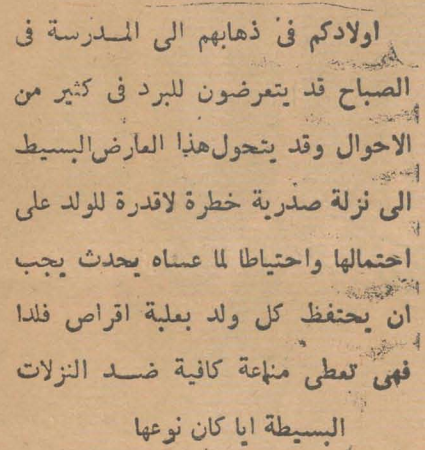 اولادكم فى ذهابهم الى المدرسة فى
الصباح قد يتعرضون للبرد فى كثير من
الاحوال وقد يتحول هذا العارض البسيط
الى نزلة صدرية خطرة لاقدرة للولد على
احتمالها واحتياطا لما عساه يحدث يجب
ان يحتفظ كل ولد بعلبة اقراص فلدا
فهى تعطى مناعة كافية ضد النزلات
البسيطة ايا كان نوعها